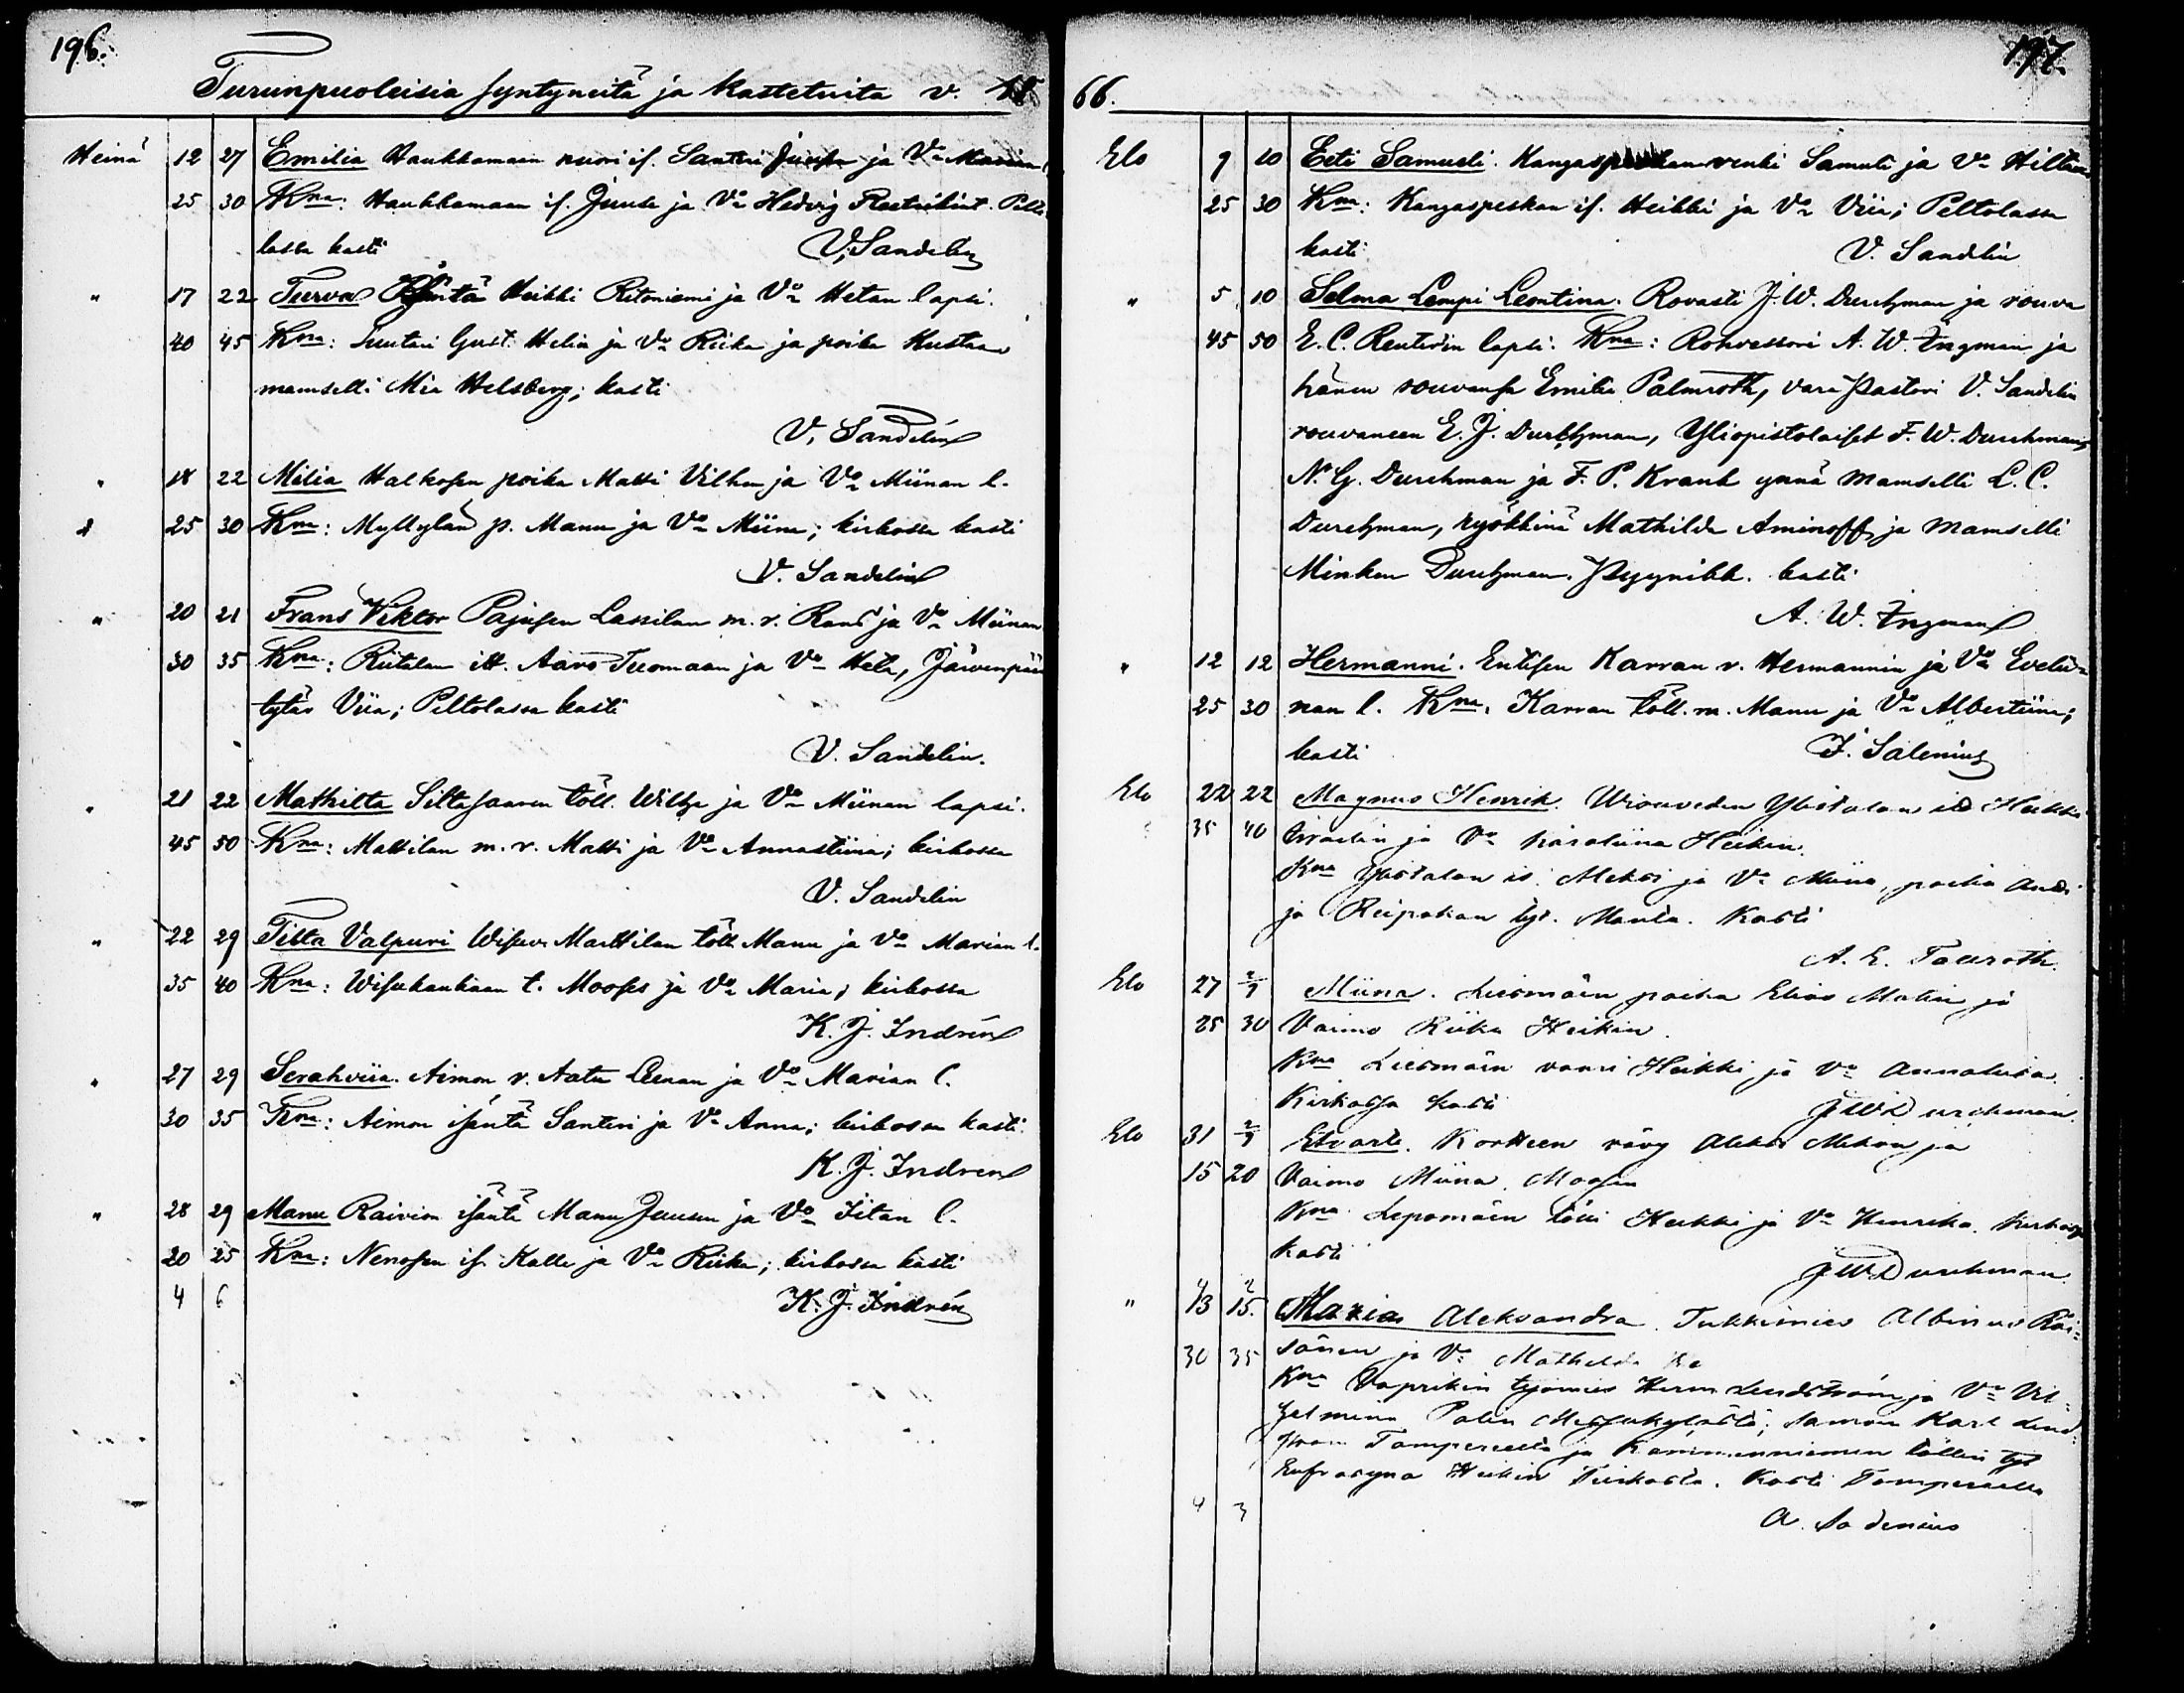 196.
Turunpuoleisia syntyneitä ja kastetuita v. 18
Heinä 12 27 Emilia Haukkamaan nuori is. Santeri Juusen ja Vo Marian
25 30 Kna: Haukkamaan is. Juuse ja Vo Hedvig Pelto
lassa kasti V. Sandelin
" 17 22 Turva Isäntä Heikki Ritoniemi ja Vo Hetan lapsi.
40 45 Kna: Suutari Gust. Helin ja Vo Riika ja poika Kustaa
mamselli Mia Helsberg; kasti
V. Sandelin
" 18 22 Milia Halkosen poika Matti Vilhon ja Vo Miinan l.
25 30 Kna: Myllylän p. Manu ja Vo Miina; kirkossa kasti
V. Sandelin
" 20 21 Frans Viktor Pajusen Lassilan m. r. ja Vo Miinan
30 35 Kna: Riitalan itt. Aaro Tuomaan ja Vo Heta, Järvenpään
tytär Viia; Peltolassa kasti
V. Sandelin.
" 21 22 Mathilta Siltasaaren töll. Wilhe ja Vo Miinan lapsi.
45 50 Kna: Mattilan m. r. Matti ja Vo Annastiina; kirkossa
V. Sandelin
" 22 29 Tilta Valpuri Wisuv. Marttilan töll. Manu ja Vo Marian l.
35 40 Kna: Wisukankaan t. Mooses ja Vo Maria; kirkossa
K. J. Indrén
" 27 29 Serahviia. Aimon r. Aatu Leenan ja Vo Marian l.
30 35 Kna: Aimon isäntä Santeri ja Vo Anna; kirkossa kasti
K. J. Indren
" 28 29 Manu Raivion isäntä Manu Juusen ja Vo Iitan l.
20 25 Kna: Nenosen is. Kalle ja Vo Riika; kirkossa kasti
4 6 K. J. Indrén
197.
66.
Elo 9 10 Eeti Samueli. Kangaspeskan renki Samuli ja Vo Hiltan
25 30 Kna: Kangaspeskan is. Heikki ja Vo Viia; Peltolassa
kasti V. Sandlin
" 5 10 Selma Lempi Leontina. Rovasti J. W. Durchman ja rouva
45 50 E. C. Reuterin lapsi. Kna: Rohvessori A. W. Ingman ja
hänen rouvansa Emilia Palmroth, vara Pastori V. Sandelin
rouvaneen E. J. Durchman, Yliopistolaiset F. W. Durchman,
N. G. Durchman ja F. P. Krank ynnä Mamselli L. C.
Durchman, ryökkinä Mathilda Aminoff ja Mamselli
Minken Durchman. Pyynikk. kasti
A. W. Ingman
" 12 12 Hermanni. Entisen Karran r. Hermannin ja Vo Eveli=
25 30 nan l. Kna. Karran töll. m. Manu ja Vo Albertiina;
kasti F. Salenius
Elo 22 22 Magnus Henrik. Ylistalon is Heikki
35 40 ja Vo Karoliina Heikin.
Kna Ylistalon is. Matti ja Vo Miina, poika Anti
ja Reipakan tyt. Manta. Kasti
A. E. Tauroth.
Elo 27 2/9 Miina. Liesmäen poika Elias Matin ja
25 30 Vaimo Riika Heikin.
Kna Liesmäen vaari Heikki ja Vo Annaluisa.
Kirkossa kasti J W Durchman.
Elo 31 2/9 Etvarti. Kortteen Aleksi ja
15 20 Vaimo Miina Moosen
Kna. Lepomäen Heikki ja Vo Henrika. Kirkossa
kasti
J W Durchman.
" 13 15. Maria Aleksandra. Tukkimies Albinus Räi=
30 35 sänen ja Vo Mathilda
Kna Vaprikin työmies Herm. Lindström ja Vo Vil=
helmina Palin Messukylästä; Karl Lind=
ström Tampereelta ja Kamminniemen töllin tyt
Eufrosyna Heikin Teiskosta. Kasti Tampereella
4 3 A. Sadenius